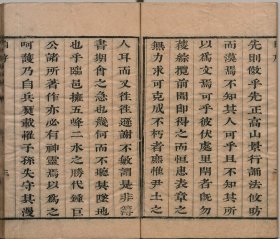 先則倣乎先正高山景行誦法攸昉
而漠焉不知其人可乎且不知其所
以爲文焉可乎彼伏處里閈者旣勿
獲綜攬前聞卽得之而恒患表章之
無力求可克成不朽者應惟尹土之
人耳而又性往遜謝不敏謂是非簿
書期會之急也幾何而不聽其墜地
也乎臨邑挹五峰二水之勝代鍾巨
公諸所著作亦必有神靈焉以爲之
呵護乃自兵燹載罹子孫失守其漫